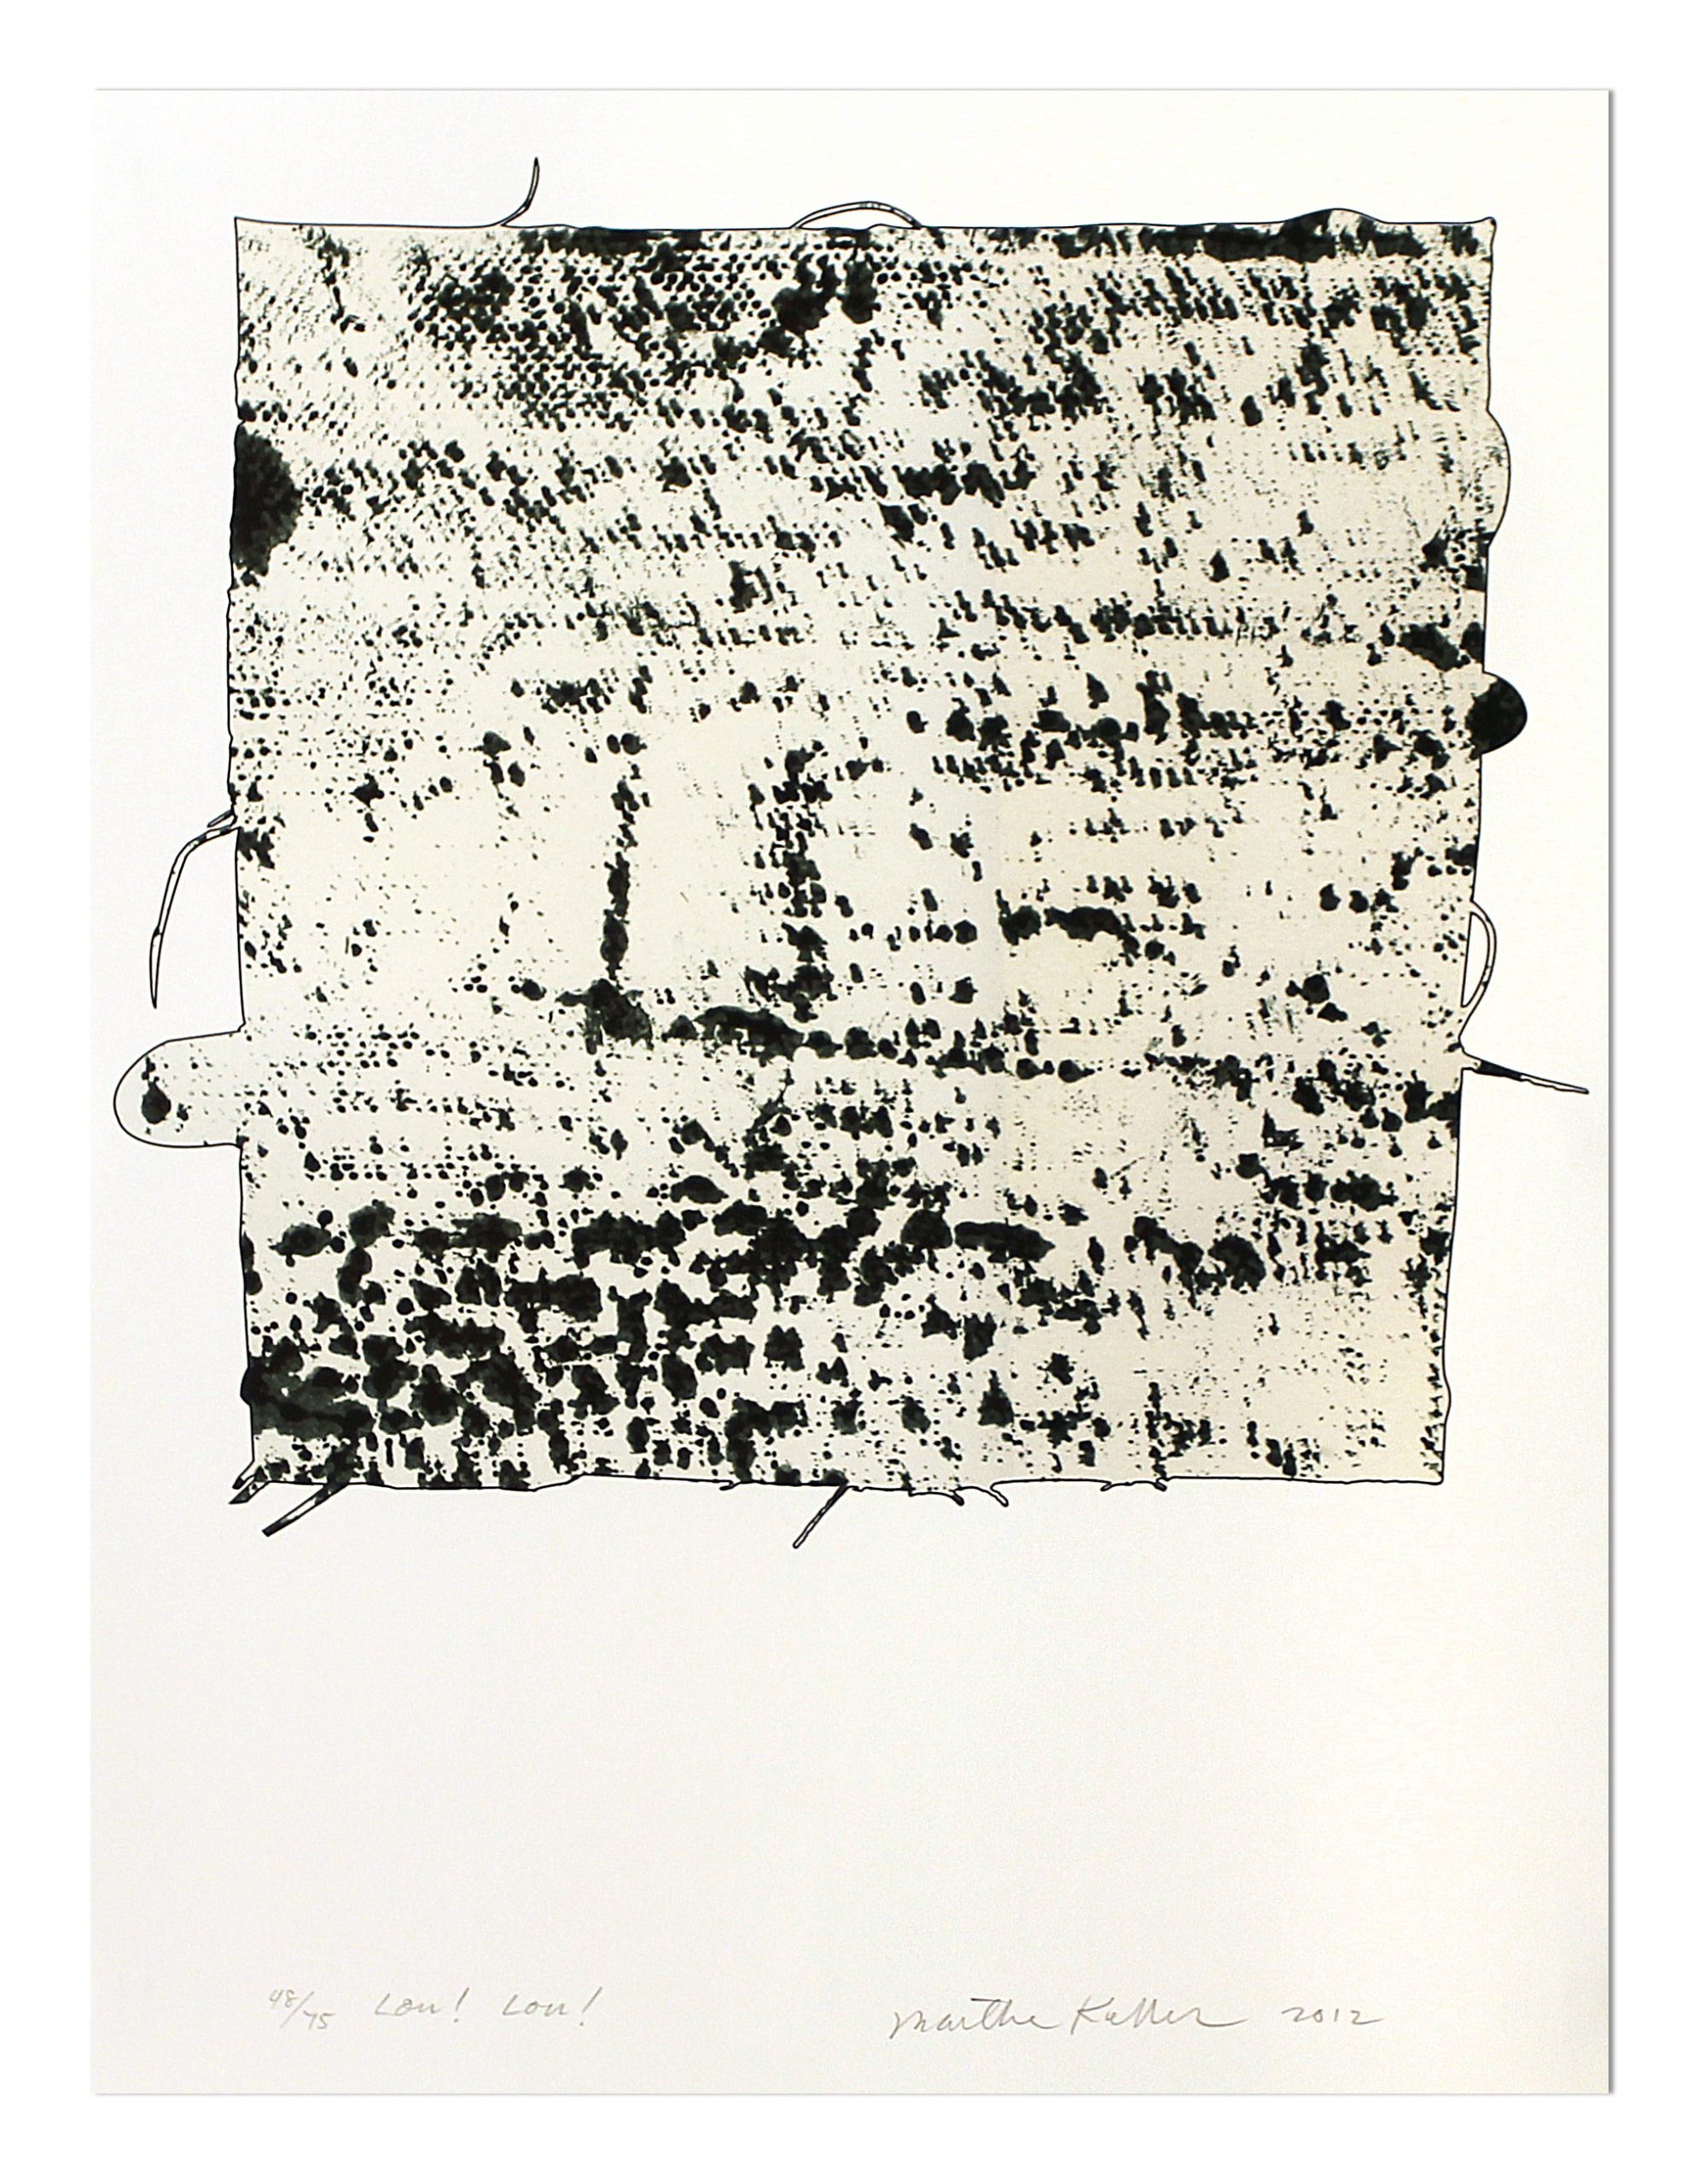 48/75 Lou! Lou! Marthe Keller 2012